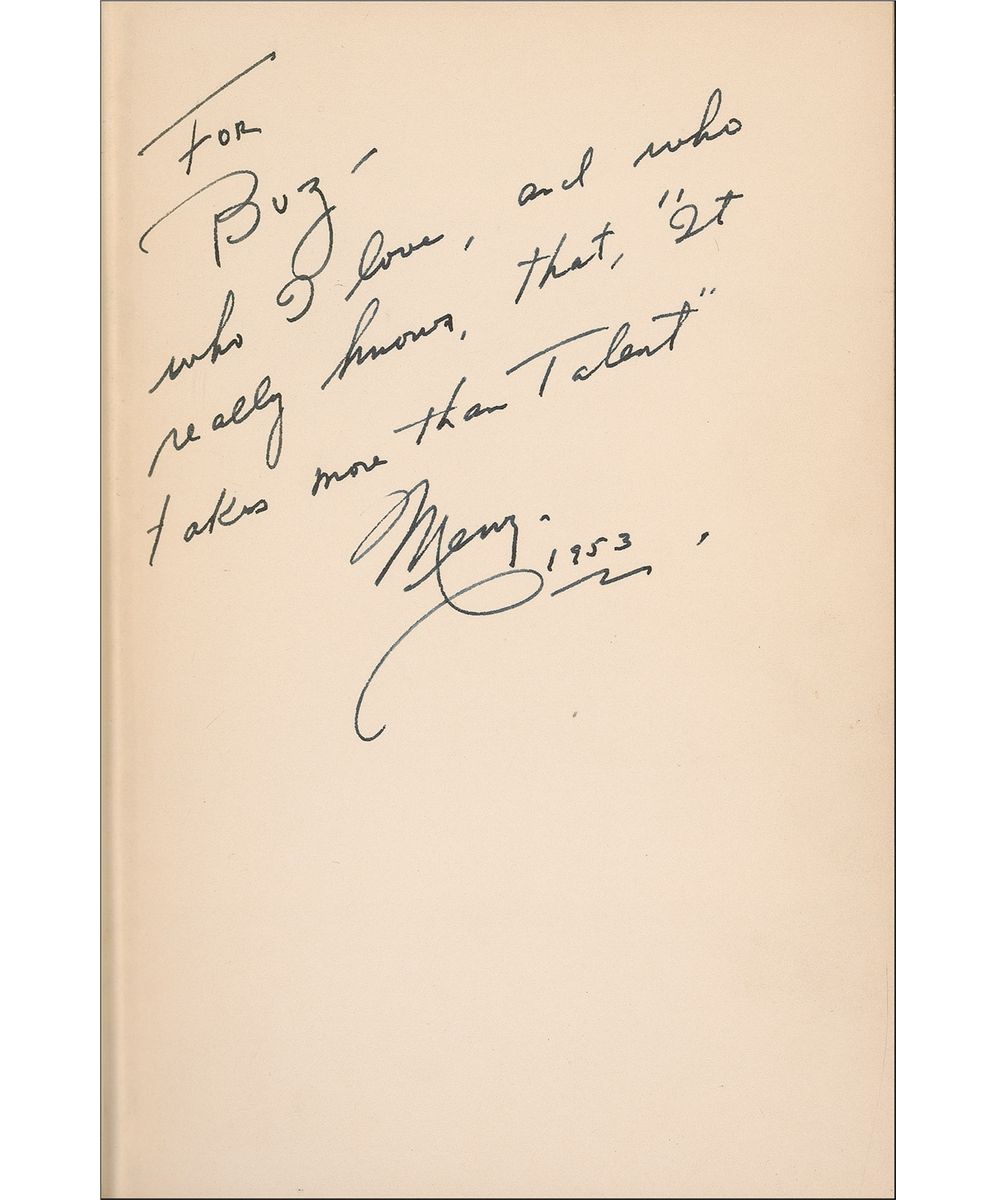 For
Buz-
who I love, and who
really knows, that, "It
takes more than Talent"
1953